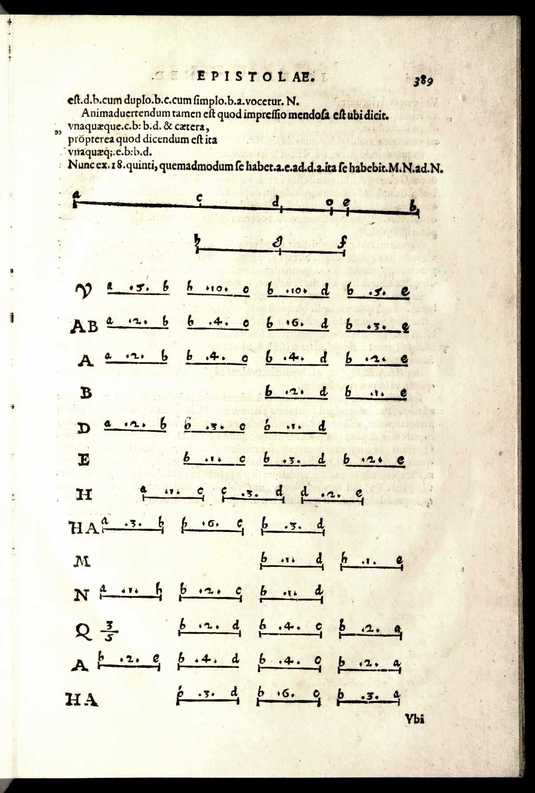 EPISTOLAE. 389
est.d.b.cum duplo.b.c.cum simplo.b.a.vocetur. N.
Animaduertendum tamen est quod impressio mendosa est ubi dicit.
„ vnaquæque.c.b: b.d. & cætera,
propterea quod dicendum est ita
vnaquæq;.e.b:b.d.
Nunc ex.18.quinti, quemadmodum se habet.a.e.ad.d.a.ita se habebit.M.N.ad.N.
a c d o e b
h g f
V a .5. b h .10. o b .10. d b .5. e
AB a .2. b b .4. o b .6. d b .3. e
A a .2. b b .4. o b .4. d b .2. e
B b .2. d b .1. e
D a .2. b b .3. c b .1. d
E b .1. c b .3. d b .2. e
H a .1. c c .3. d d .2. e
HA a .3. b b .6. c b .3. d
M b .1. d h .1. e
N a .1. h b .2. c b .1. d
Q 3/5 b .2. d b .4. c b .2. a
A b .2. e b .4. d b .4. o b .2. a
HA b .3. d b .6. o b .3. a
Vbi